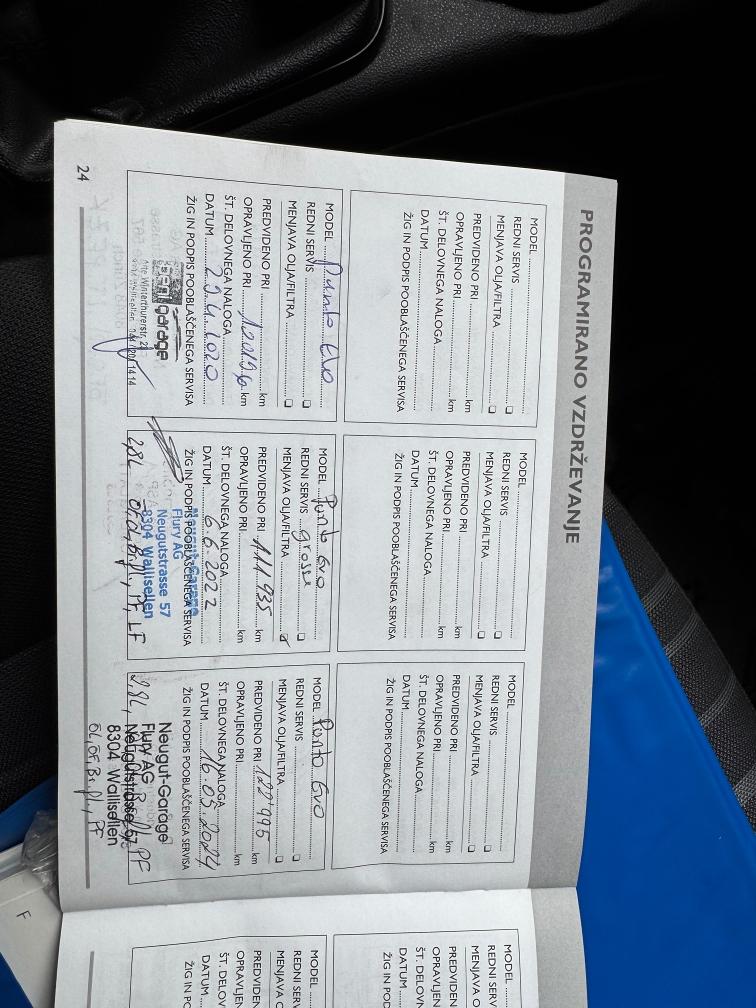 PROGRAMIRANO VZDRŽEVANJE
MODEL
REDNI SERVIS
MENJAVA OLJA/FILTRA
PREDVIDENO PRI km
OPRAVLJENO PRI km
ŠT. DELOVNEGA NALOGA
DATUM
ŽIG IN PODPIS POOBLAŠČENEGA SERVISA
MODEL
REDNI SERVIS
MENJAVA OLJA/FILTRA
PREDVIDENO PRI km
OPRAVLJENO PRI km
ŠT. DELOVNEGA NALOGA
DATUM
ŽIG IN PODPIS POOBLAŠČENEGA SERVISA
MODEL
REDNI SERVIS
MENJAVA OLJA/FILTRA
PREDVIDENO PRI km
OPRAVLJENO PRI km
ŠT. DELOVNEGA NALOGA
DATUM
ŽIG IN PODPIS POOBLAŠČENEGA SERVISA
MODEL Punto Evo
REDNI SERVIS
MENJAVA OLJA/FILTRA
PREDVIDENO PRI km
OPRAVLJENO PRI km
ŠT. DELOVNEGA NALOGA
DATUM
ŽIG IN PODPIS POOBLAŠČENEGA SERVISA
garage
Alte Winterthurerstr.
MODEL Punto Evo
REDNI SERVIS grosse
MENJAVA OLJA/FILTRA
PREDVIDENO PRI 111'935 km
OPRAVLJENO PRI km
ŠT. DELOVNEGA NALOGA
DATUM 6.6.2022
ŽIG IN PODPIS POOBLAŠČENEGA SERVISA
Neugut-Garage
Flury AG
Neugutstrasse 57
8304 Wallisellen
MODEL Punto Evo
REDNI SERVIS
MENJAVA OLJA/FILTRA
PREDVIDENO PRI 122'995 km
OPRAVLJENO PRI km
ŠT. DELOVNEGA NALOGA
DATUM 16.05.2024
ŽIG IN PODPIS POOBLAŠČENEGA SERVISA
Neugut-Garage
Flury AG
Neugutstrasse 57
8304 Wallisellen
24
MODEL
REDNI SERVIS
MENJAVA O
PREDVIDEN
OPRAVLJEN
ŠT. DELOVN
DATUM
ŽIG IN PO
MODEL
REDNI SERVIS
MENJAVA OL
PREDVIDEN
OPRAVLJEN
ŠT. DELOV
DATUM
ŽIG IN PO
F